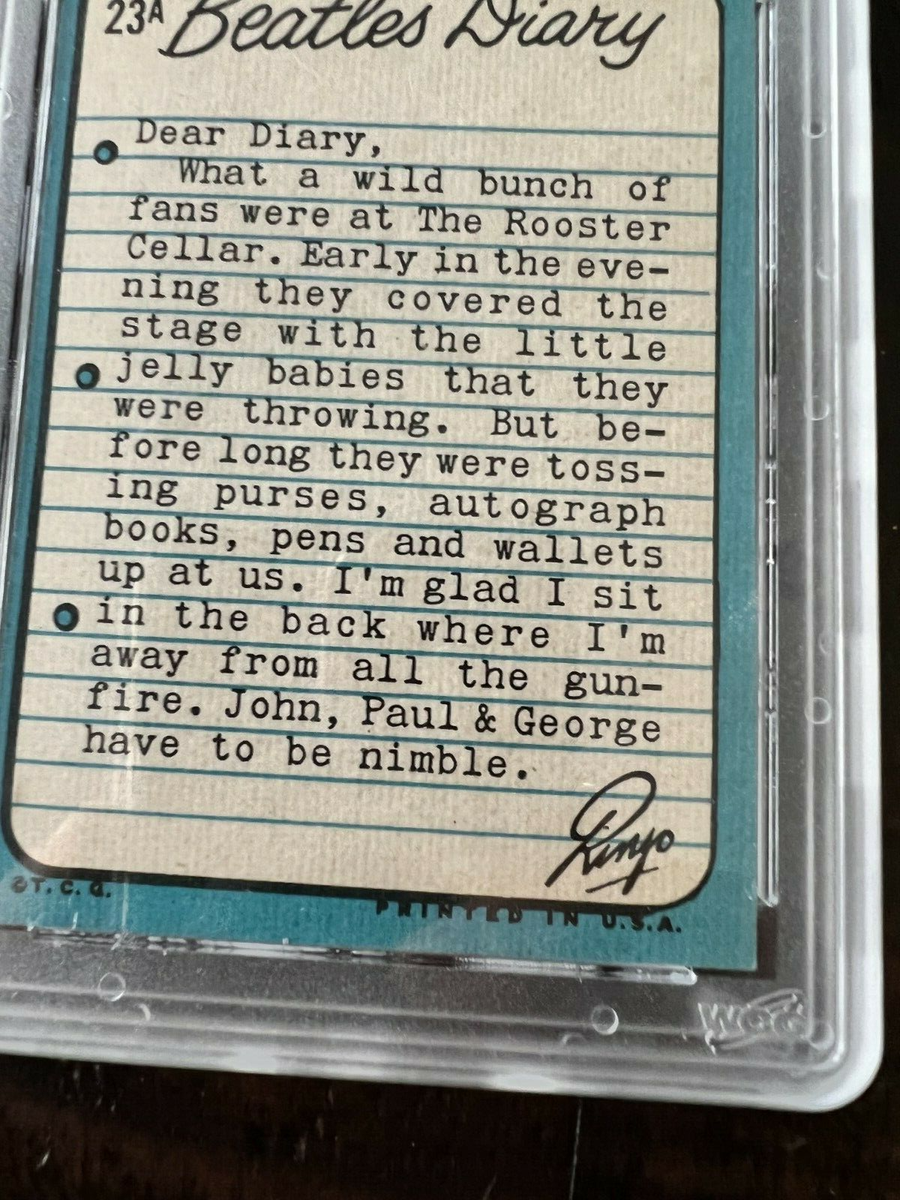 23A Beatles Diary
Dear Diary,
What a wild bunch of
fans were at The Rooster
Cellar. Early in the eve-
ning they covered the
stage with the little
jelly babies that they
were throwing. But be-
fore long they were toss-
ing purses, autograph
books, pens and wallets
up at us. I'm glad I sit
in the back where I'm
away from all the gun-
fire. John, Paul & George
have to be nimble.
Ringo
©T. C. G.
PRINTED IN U.S.A.